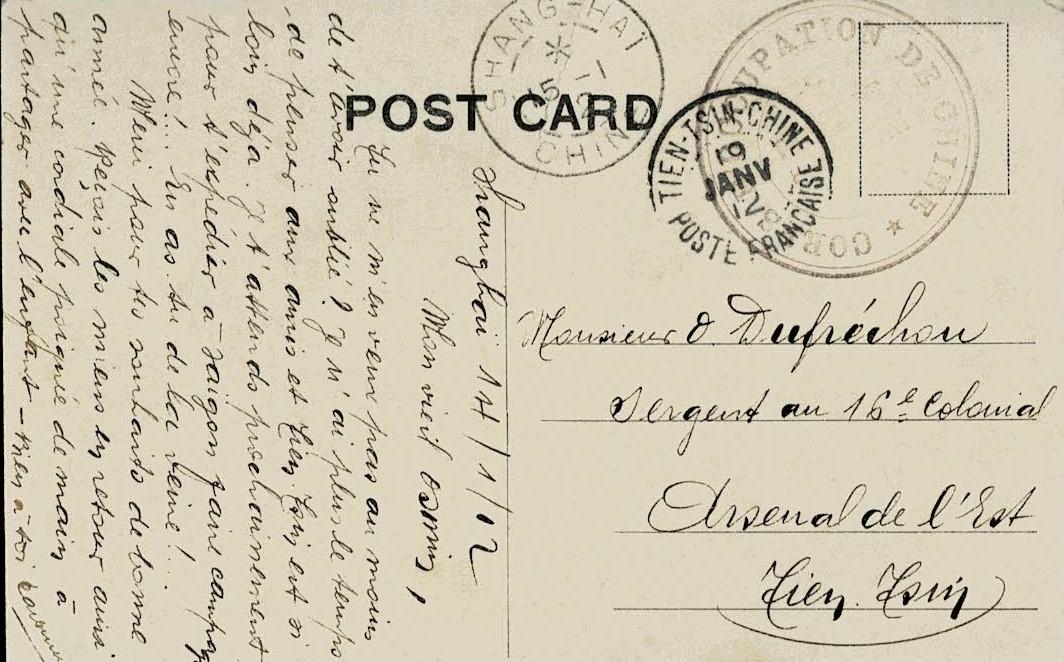 POST CARD
SHANG-HAÏ
CHINE
OCCUPATION DE CHINE
COR
TIEN-TSIN-CHINE
19
JANV
POSTE FRANÇAISE
Shanghai 14/1/12
Mon vieil Osmin,
Tu ne m'en veux pas au moins
de t'avoir oublié? Je n'ai plus le temps
de penser aux amis et Tien Tsin est si
loin déjà. Je t'attends prochainement
pour t'expédier à Saigon faire campagne
encore!.. En as-tu de la veine!..
Merci pour tes souhaits de bonne
année. Reçois les miens en retour ainsi
qu'une cordiale poignée de main à
partager avec l'enfant - Bien à toi
Monsieur O. Dufréchou
Sergent au 16e Colonial
Arsenal de l'Est
Tien Tsin